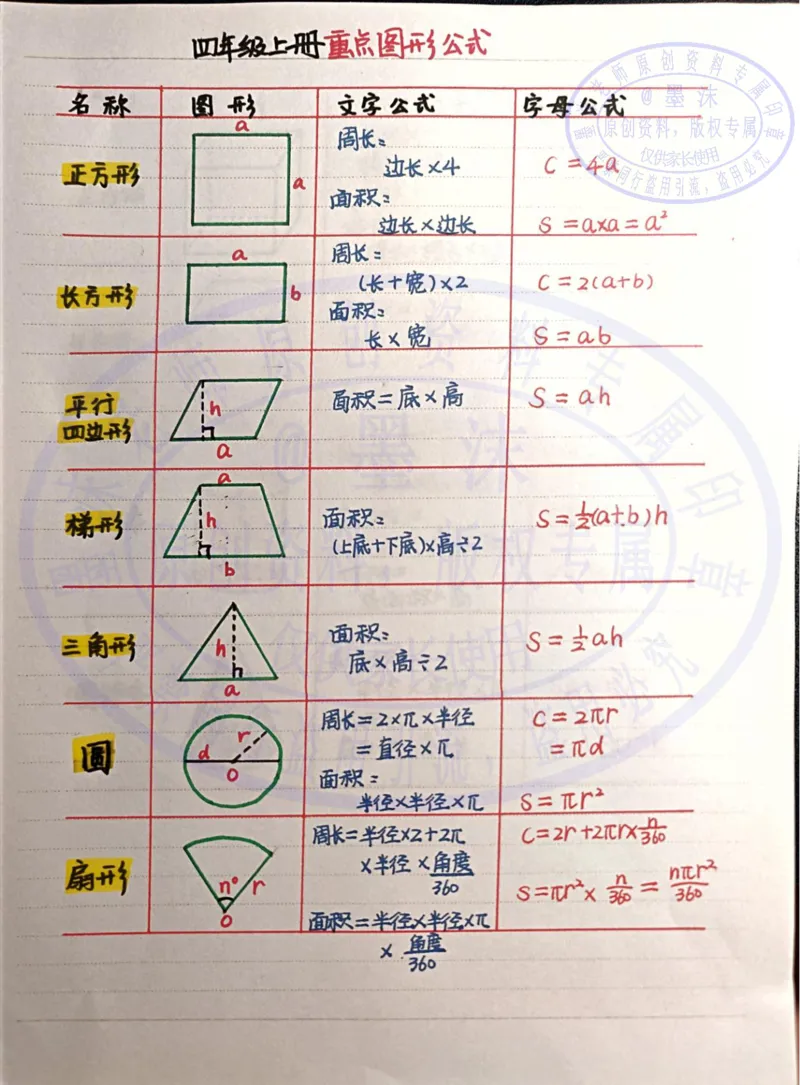 四年级上册重点图形公式
名称 图形 文字公式 字母公式
正方形
a
a
周长:
边长×4
面积:
边长×边长
C=4a
S=a×a=a²
长方形
a
b
周长:
(长+宽)×2
面积:
长×宽
C=2(a+b)
S=ab
平行
四边形
h
a
面积=底×高
S=ah
梯形
a
h
b
面积:
(上底+下底)×高÷2
S=½(a+b)h
三角形
h
a
面积:
底×高÷2
S=½ah
圆
d
r
O
周长=2×π×半径
=直径×π
面积:
半径×半径×π
C=2πr
=πd
S=πr²
扇形
n°
r
O
周长=半径×2+2π
×半径×角度/360
面积=半径×半径×π
×角度/360
C=2r+2πr×n/360
S=πr²×n/360=nπr²/360
老师原创资料专属印章
@墨沫
原创资料,版权专属
仅供家长使用
同行盗用引流,盗用必究
原创资料专属印章
@墨沫
原创资料,版权专属
仅供家长使用